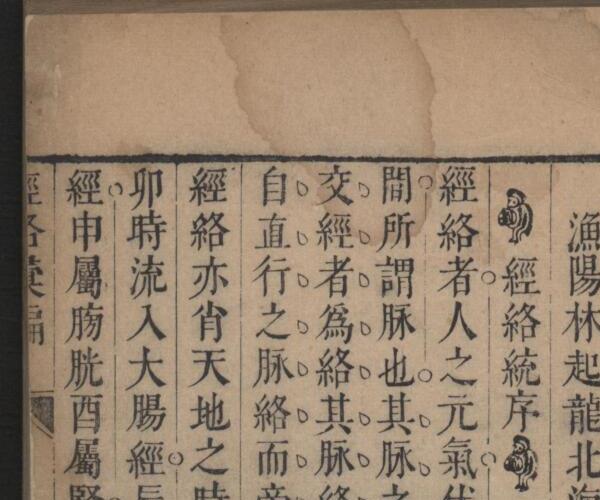 漁陽林起龍北海
經絡統序
經絡者人之元氣
間所謂脉也其脉之
交經者為絡其脉絡
自直行之脉絡而
經絡亦肖天地之時
卯時流入大腸經
經申屬膀胱酉屬腎
經絡彙編